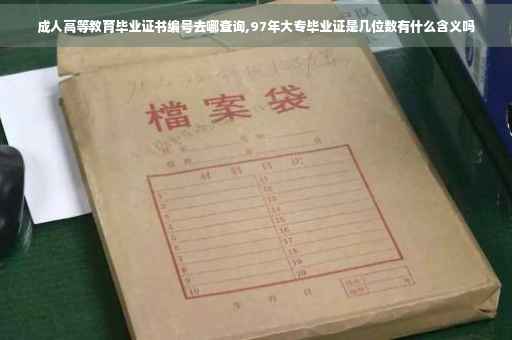 成人高等教育毕业证书编号去哪查询,97年大专毕业证是几位数有什么含义吗
檔案袋
材料目次
1 11
2 12
3 13
4 14
5 15
6 16
7 17
8 18
9 19
10 20
年 月 日